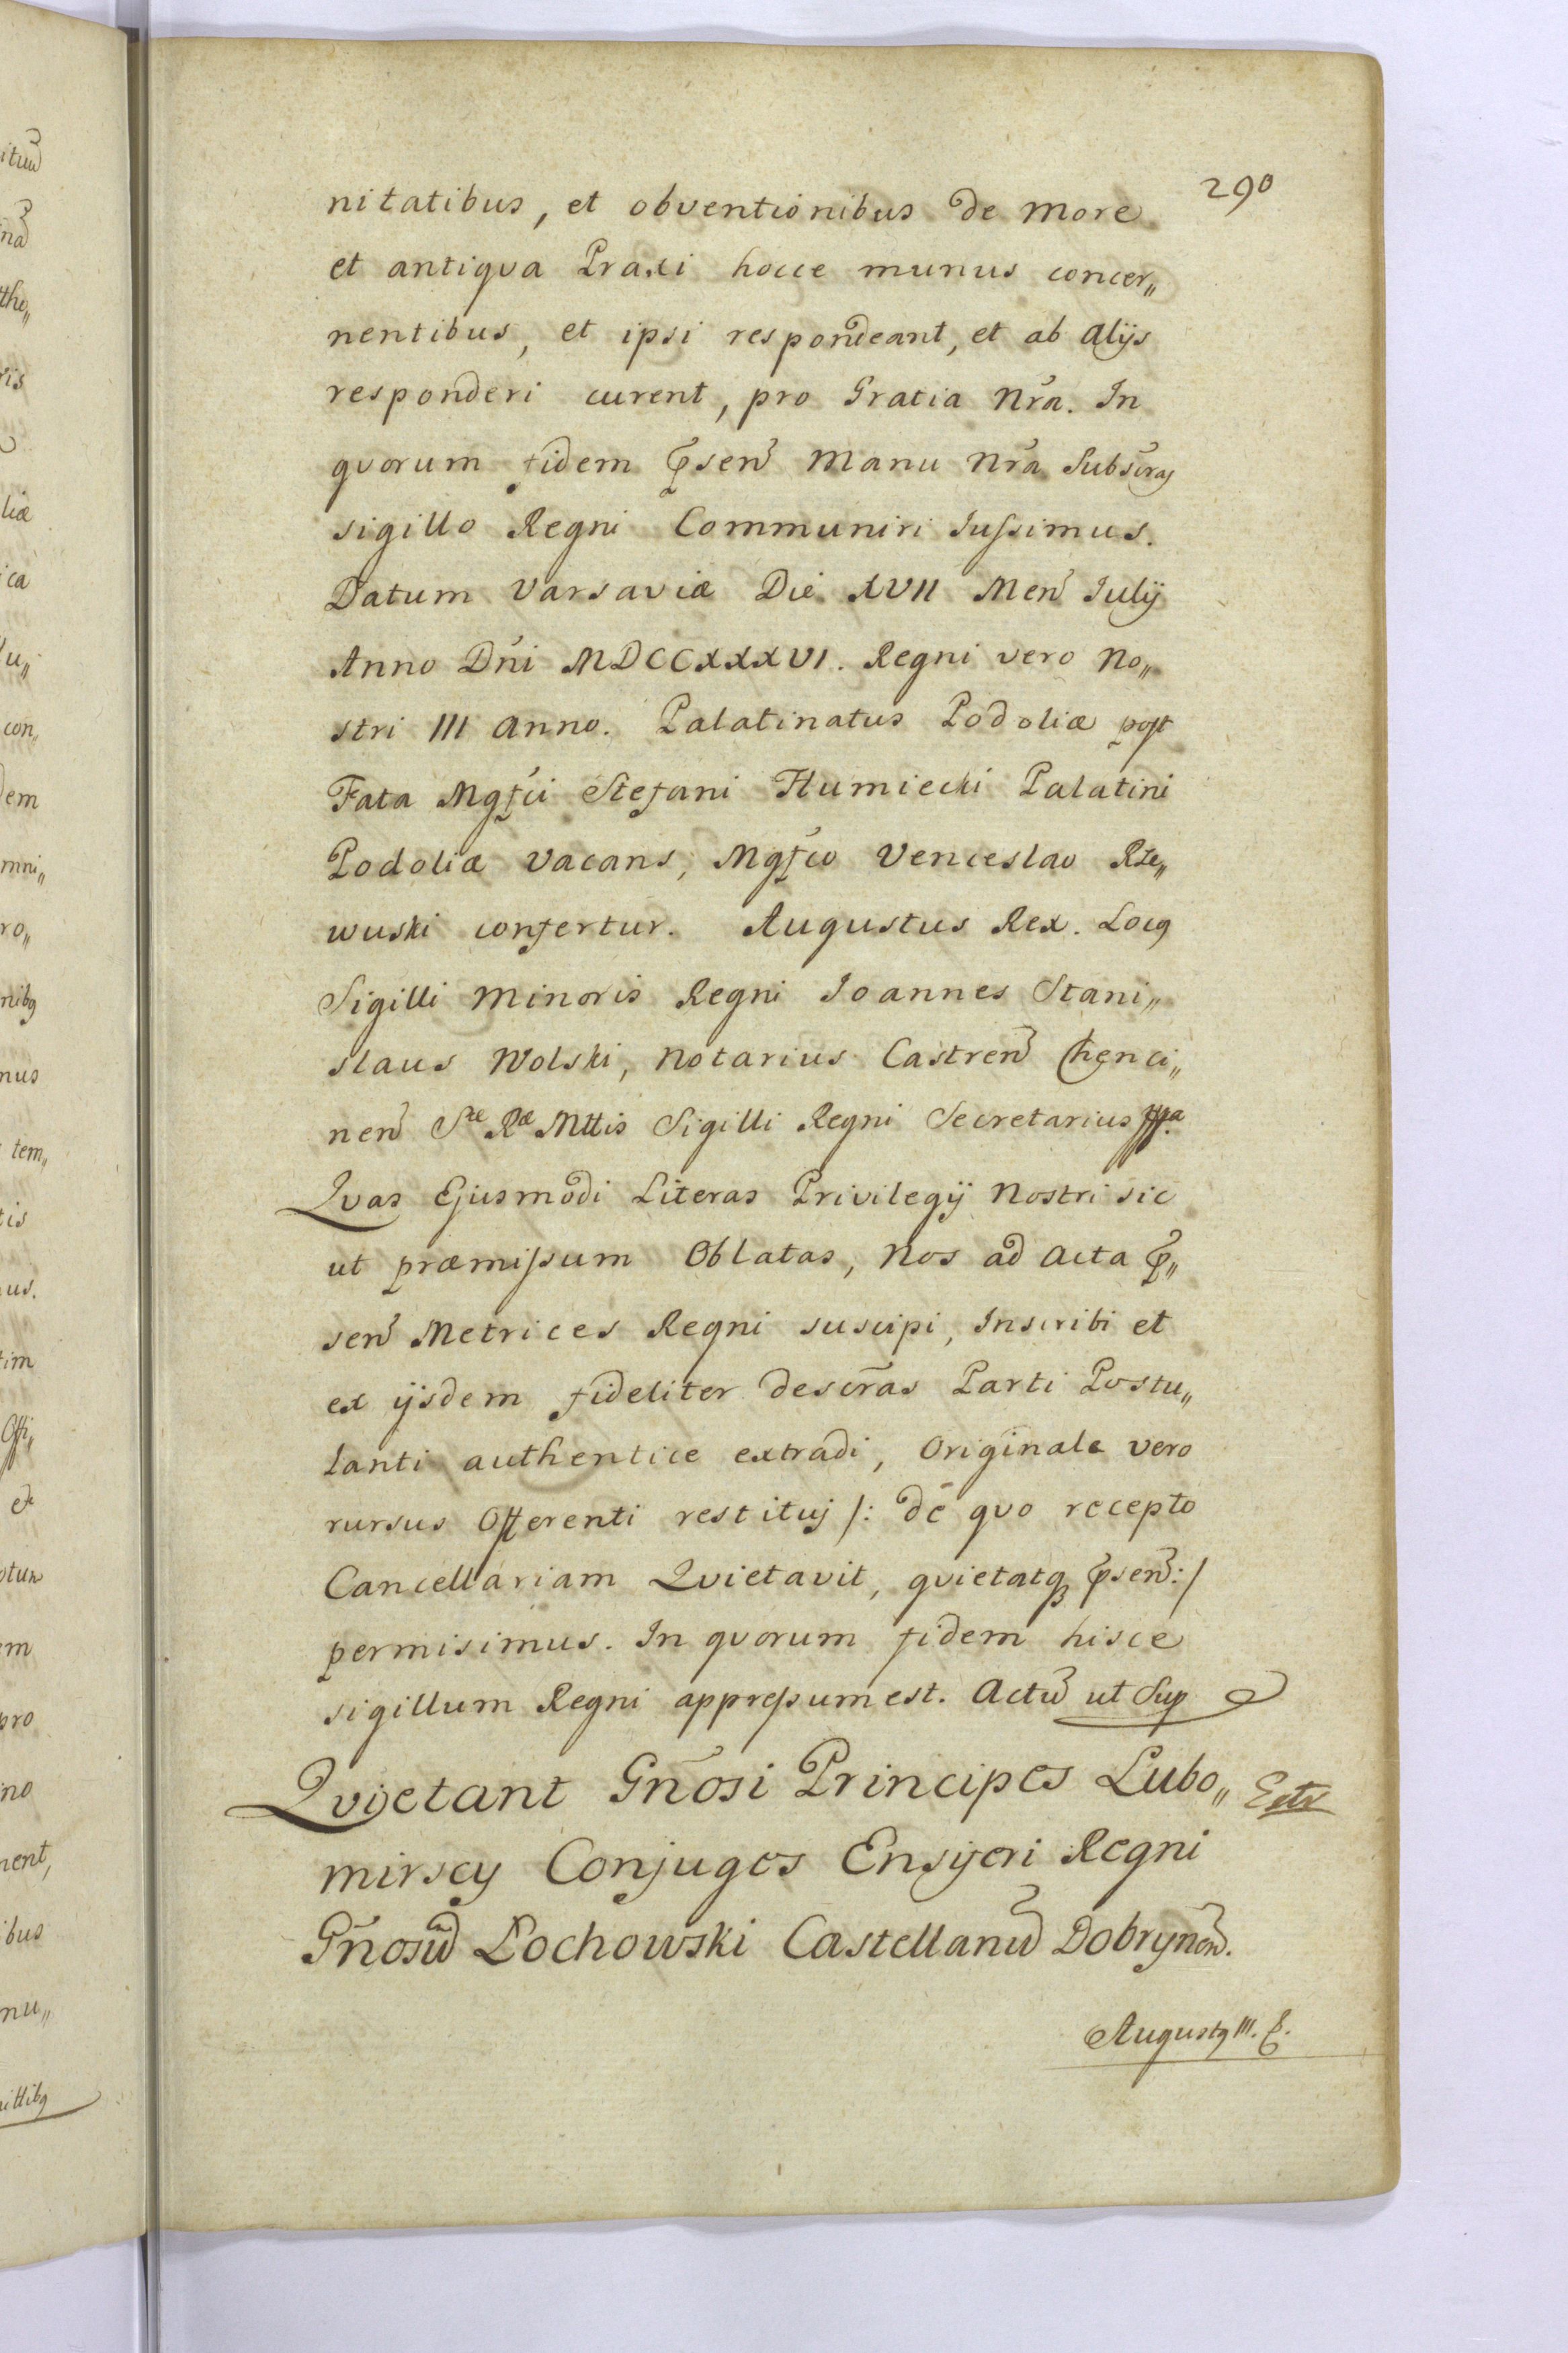 290
nitatibus, et obventionibus de more
et antiqva Praxi hocce munus concer„
nentibus, et ipsi respondeant, et ab alijs
responderi curent, pro Gratia Nr̃a. In
qvorum fidem p̃sen̄ Manu Nr̃a Subscr̃as
sigillo Regni Communiri Iussimus.
Datum Varsaviæ Die XVII Men̄ Iulij
Anno Dn̄i MDCCXXXVI. Regni vero No„
stri III anno. Palatinatus Podoliæ post
Fata Mgf̃ci Stefani Humiecki Palatini
Podoliæ vacans, Mgf̃co Venceslao Rze„
wuski confertur. Augustus Rex. Locq
Sigilli Minoris Regni Joannes Stani„
slaus Wolski, Notarius Castren̄ Chenci„
nen̄ Sæ Ræ Mttis Sigilli Regni Secretarius
Qvas Ejusmodi Literas Privilegij Nostri sic
ut præmissum Oblatas, Nos ad Acta p̃„
sen̄ Metrices Regni suscipi, Inscribi et
ex ijsdem fideliter descr̃as Parti Postu„
lanti authentice extradi, Originale vero
rursus Offerenti restituj /: de qvo recepto
Cancellariam Qvietavit, qvietatq p̃sen̄ :/
permisimus. In qvorum fidem hisce
sigillum Regni appressum est. Actũ ut Sup
Qvijetant Gn̄osi Principes Lubo„
mirscy Conjuges Ensijeri Regni
Gn̄osũ Lochowski Castellanũ Dobrynen̄.
Augustq III.